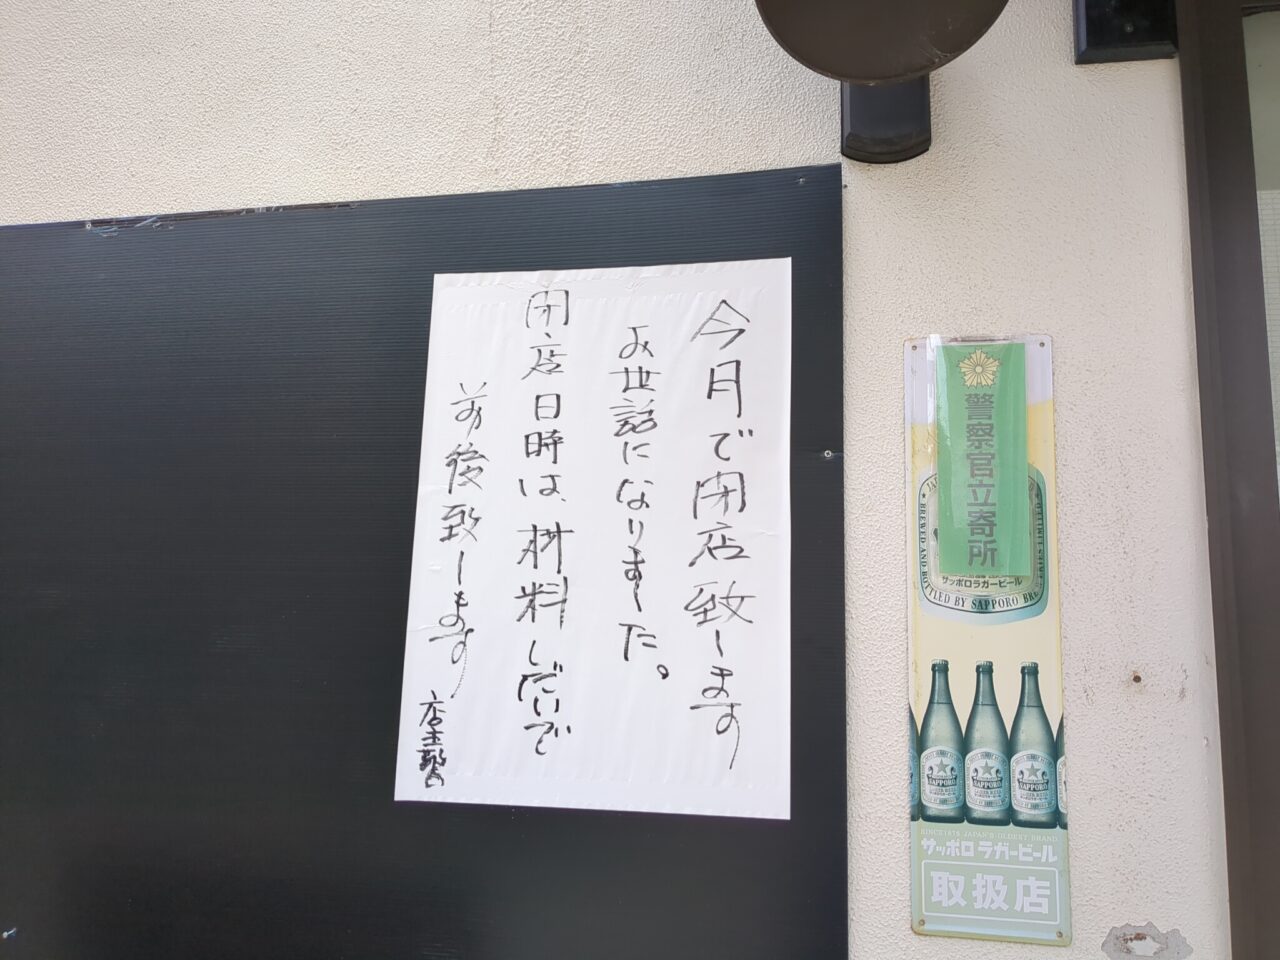 今月で閉店致します
お世話になりました。
閉店日時は、材料しだいで
前後致します
店主
警察官立寄所
サッポロラガービール
BREWED AND BOTTLED BY SAPPORO BRE
SAPPORO
SAPPORO
SAPPORO
SINCE 1876 JAPAN'S OLDEST BRAND
サッポロラガービール
取扱店